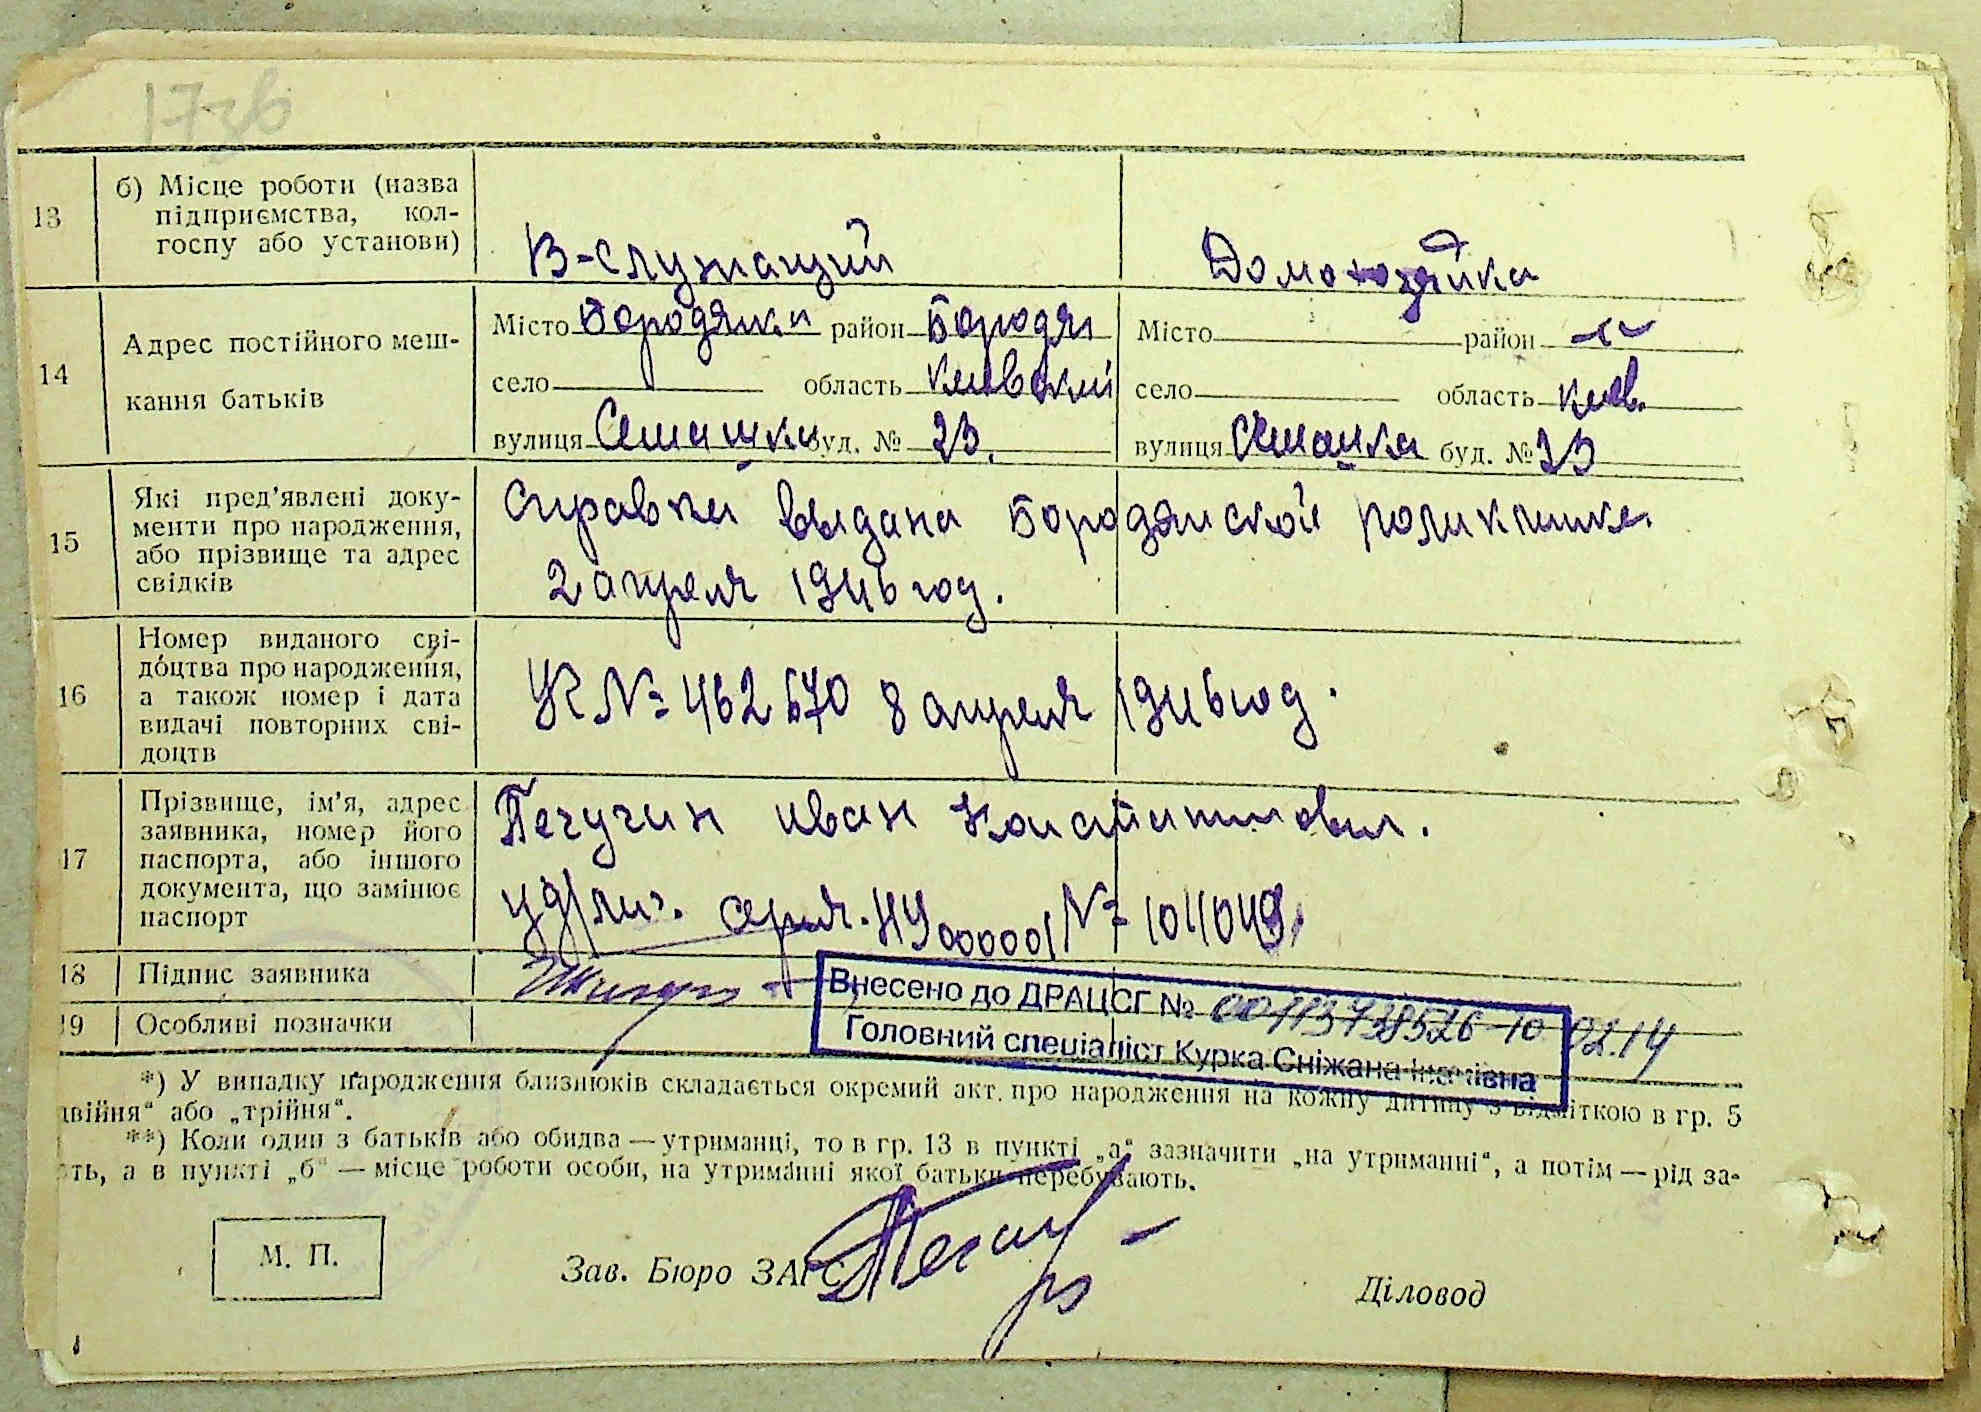 173в
13 б) Місце роботи (назва
підприємства, кол-
госпу або установи)
В-служащий Домохозяйка
14 Адрес постійного меш-
кання батьків
Місто Бородянка район Бородян Місто район -"-
село область киевский село область киев.
вулиця Семашки буд. № 23. вулиця Семашка буд. № 23
15 Які пред'явлені доку-
менти про народження,
або прізвище та адрес
свідків
Справка выдана Бородянской поликлинике
2 апреля 1946 год.
16 Номер виданого сві-
доцтва про народження,
а також номер і дата
видачі повторних сві-
доцтв
УК № 462670 8 апреля 1946 год.
17 Прізвище, ім'я, адрес
заявника, номер його
паспорта, або іншого
документа, що замінює
паспорт
Печугин иван
уд/лич. серия. НУ 000001 № 1011049.
18 Підпис заявника
19 Особливі позначки
Внесено до ДРАЦСГ № 00113738526 10.02.14
Головний спеціаліст Курка Сніжана
*) У випадку народження близнюків складається окремий акт про народження на кожну дитину з відміткою в гр. 5
двійня“ або „трійня“.
**) Коли один з батьків або обидва — утриманці, то в гр. 13 в пункті „а“ зазначити „на утриманні“, а потім — рід за-
ть, а в пункті „б“ — місце роботи особи, на утриманні якої батьки перебувають.
М. П. Зав. Бюро ЗАГС Діловод